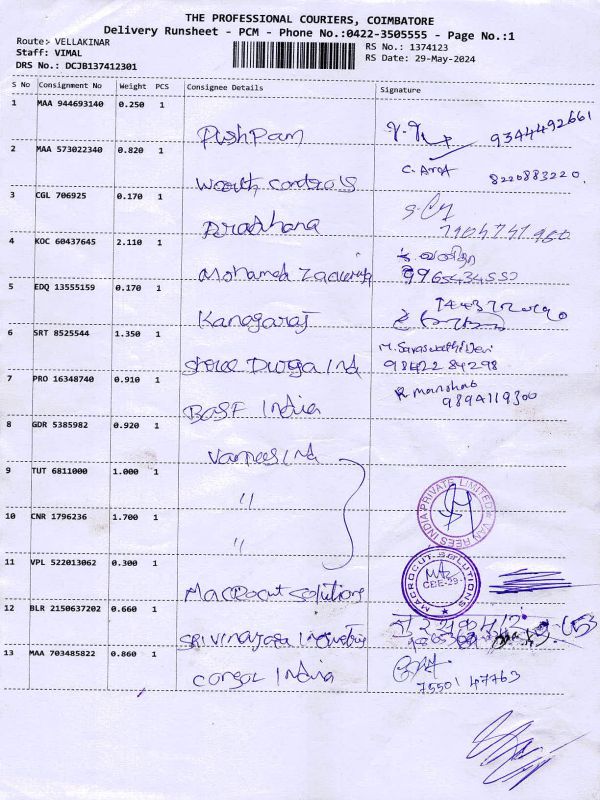 THE PROFESSIONAL COURIERS, COIMBATORE
Delivery Runsheet - PCM - Phone No.:0422-3505555 - Page No.:1
Route:- VELLAKINAR
RS No.: 1374123
Staff: VIMAL
RS Date: 29-May-2024
DRS No.: DCJB137412301
S No Consignment No Weight PCS Consignee Details Signature
1 MAA 944693140 0.250 1
Pushpam 9344492661
2 MAA 573022340 0.820 1
controls 8220883220
3 CGL 706925 0.170 1
Aradhana
4 KOC 60437645 2.110 1
Mohamed 9965434550
5 EDQ 13555159 0.170 1
Kanagaraj
6 SRT 8525544 1.350 1
Shree Durga Ind M. Saraswathi Devi
98422 84298
7 PRO 16348740 0.910 1
BASF India R manohar
9894119300
8 GDR 5385982 0.920 1
Vanrees Ind
9 TUT 6811000 1.000 1
"
VAN REES INDIA PRIVATE LIMITED
10 CNR 1796236 1.700 1
"
11 VPL 522013062 0.300 1
Macrocut Solutions
MACROCUT SOLUTIONS
CBE-29
12 BLR 2150637202 0.660 1
Sri Vinayaga
13 MAA 703485822 0.860 1
Consol India
75501 47763